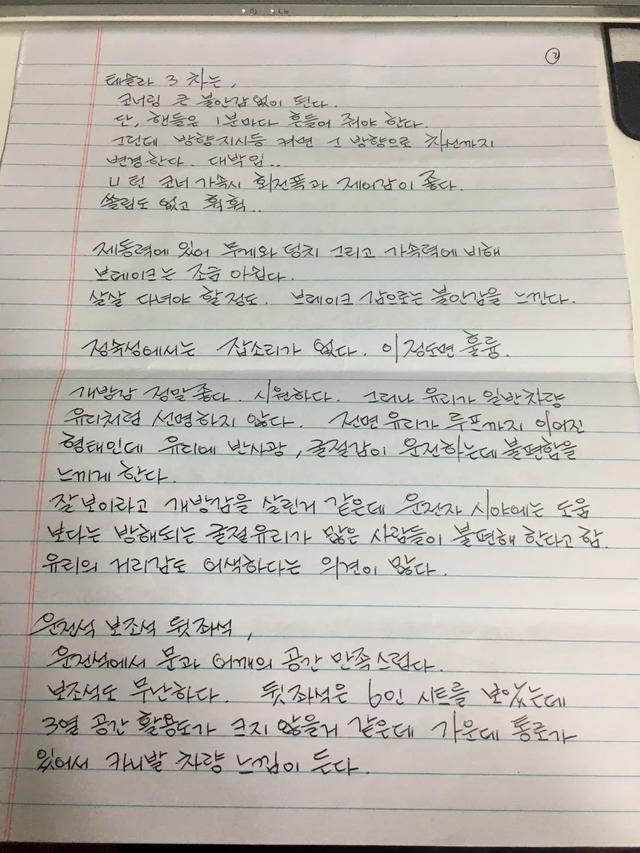 ②
테슬라 3 차는,
코너링 큰 불안감 없이 된다.
단, 핸들은 1분마다 흔들어 줘야 한다.
그런데 방향지시등 켜면 그 방향으로 차선까지
변경한다. 대박임..
U 턴 코너 가속시 회전폭과 제어감이 좋다.
쏠림도 없고 휙휙..
제동력에 있어 무게와 덩치 그리고 가속력에 비해
브레이크는 조금 아쉽다.
살살 다녀야 할 정도. 브레이크 감으로는 불안감을 느낀다.
정숙성에서는 잡소리가 없다. 이정도면 훌륭.
개방감 정말 좋다. 시원하다. 그러나 유리가 일반차량
유리처럼 선명하지 않다. 전면유리가 루프까지 이어진
형태인데 유리에 반사광, 굴절감이 운전하는데 불편함을
느끼게 한다.
잘 보이라고 개방감을 살린거 같은데 운전자 시야에는 도움
보다는 방해되는 굴절유리가 많은 사람들이 불편해 한다고 함.
유리의 거리감도 어색하다는 의견이 많다.
운전석 보조석 뒷좌석,
운전석에서 문과 어깨의 공간 만족스럽다.
보조석도 무난하다. 뒷좌석은 6인 시트를 보았는데
3열 공간 활용도가 크지 않을거 같은데 가운데 통로가
있어서 카니발 차량 느낌이 든다.